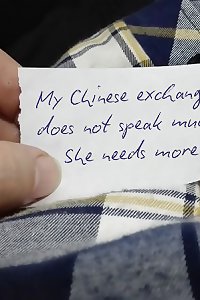 My Chinese exchang
does not speak muc
She needs more